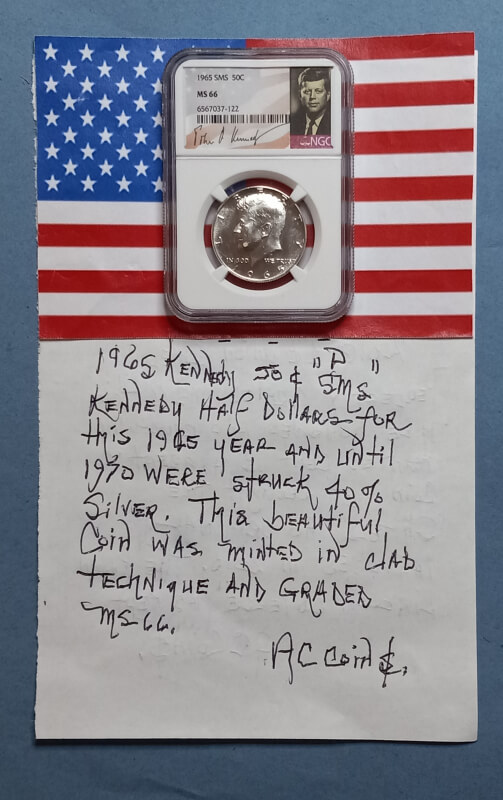 1965 SMS 50C
MS 66
6567037-122
NGC
John F Kennedy
LIBERTY
IN GOD WE TRUST
1965
1965 Kennedy 50¢ "P SMS"
Kennedy Half Dollars for
this 1965 year and until
1970 were struck 40%
Silver. This beautiful
Coin was minted in clad
technique and Graded
MS66.
AC Coin $.